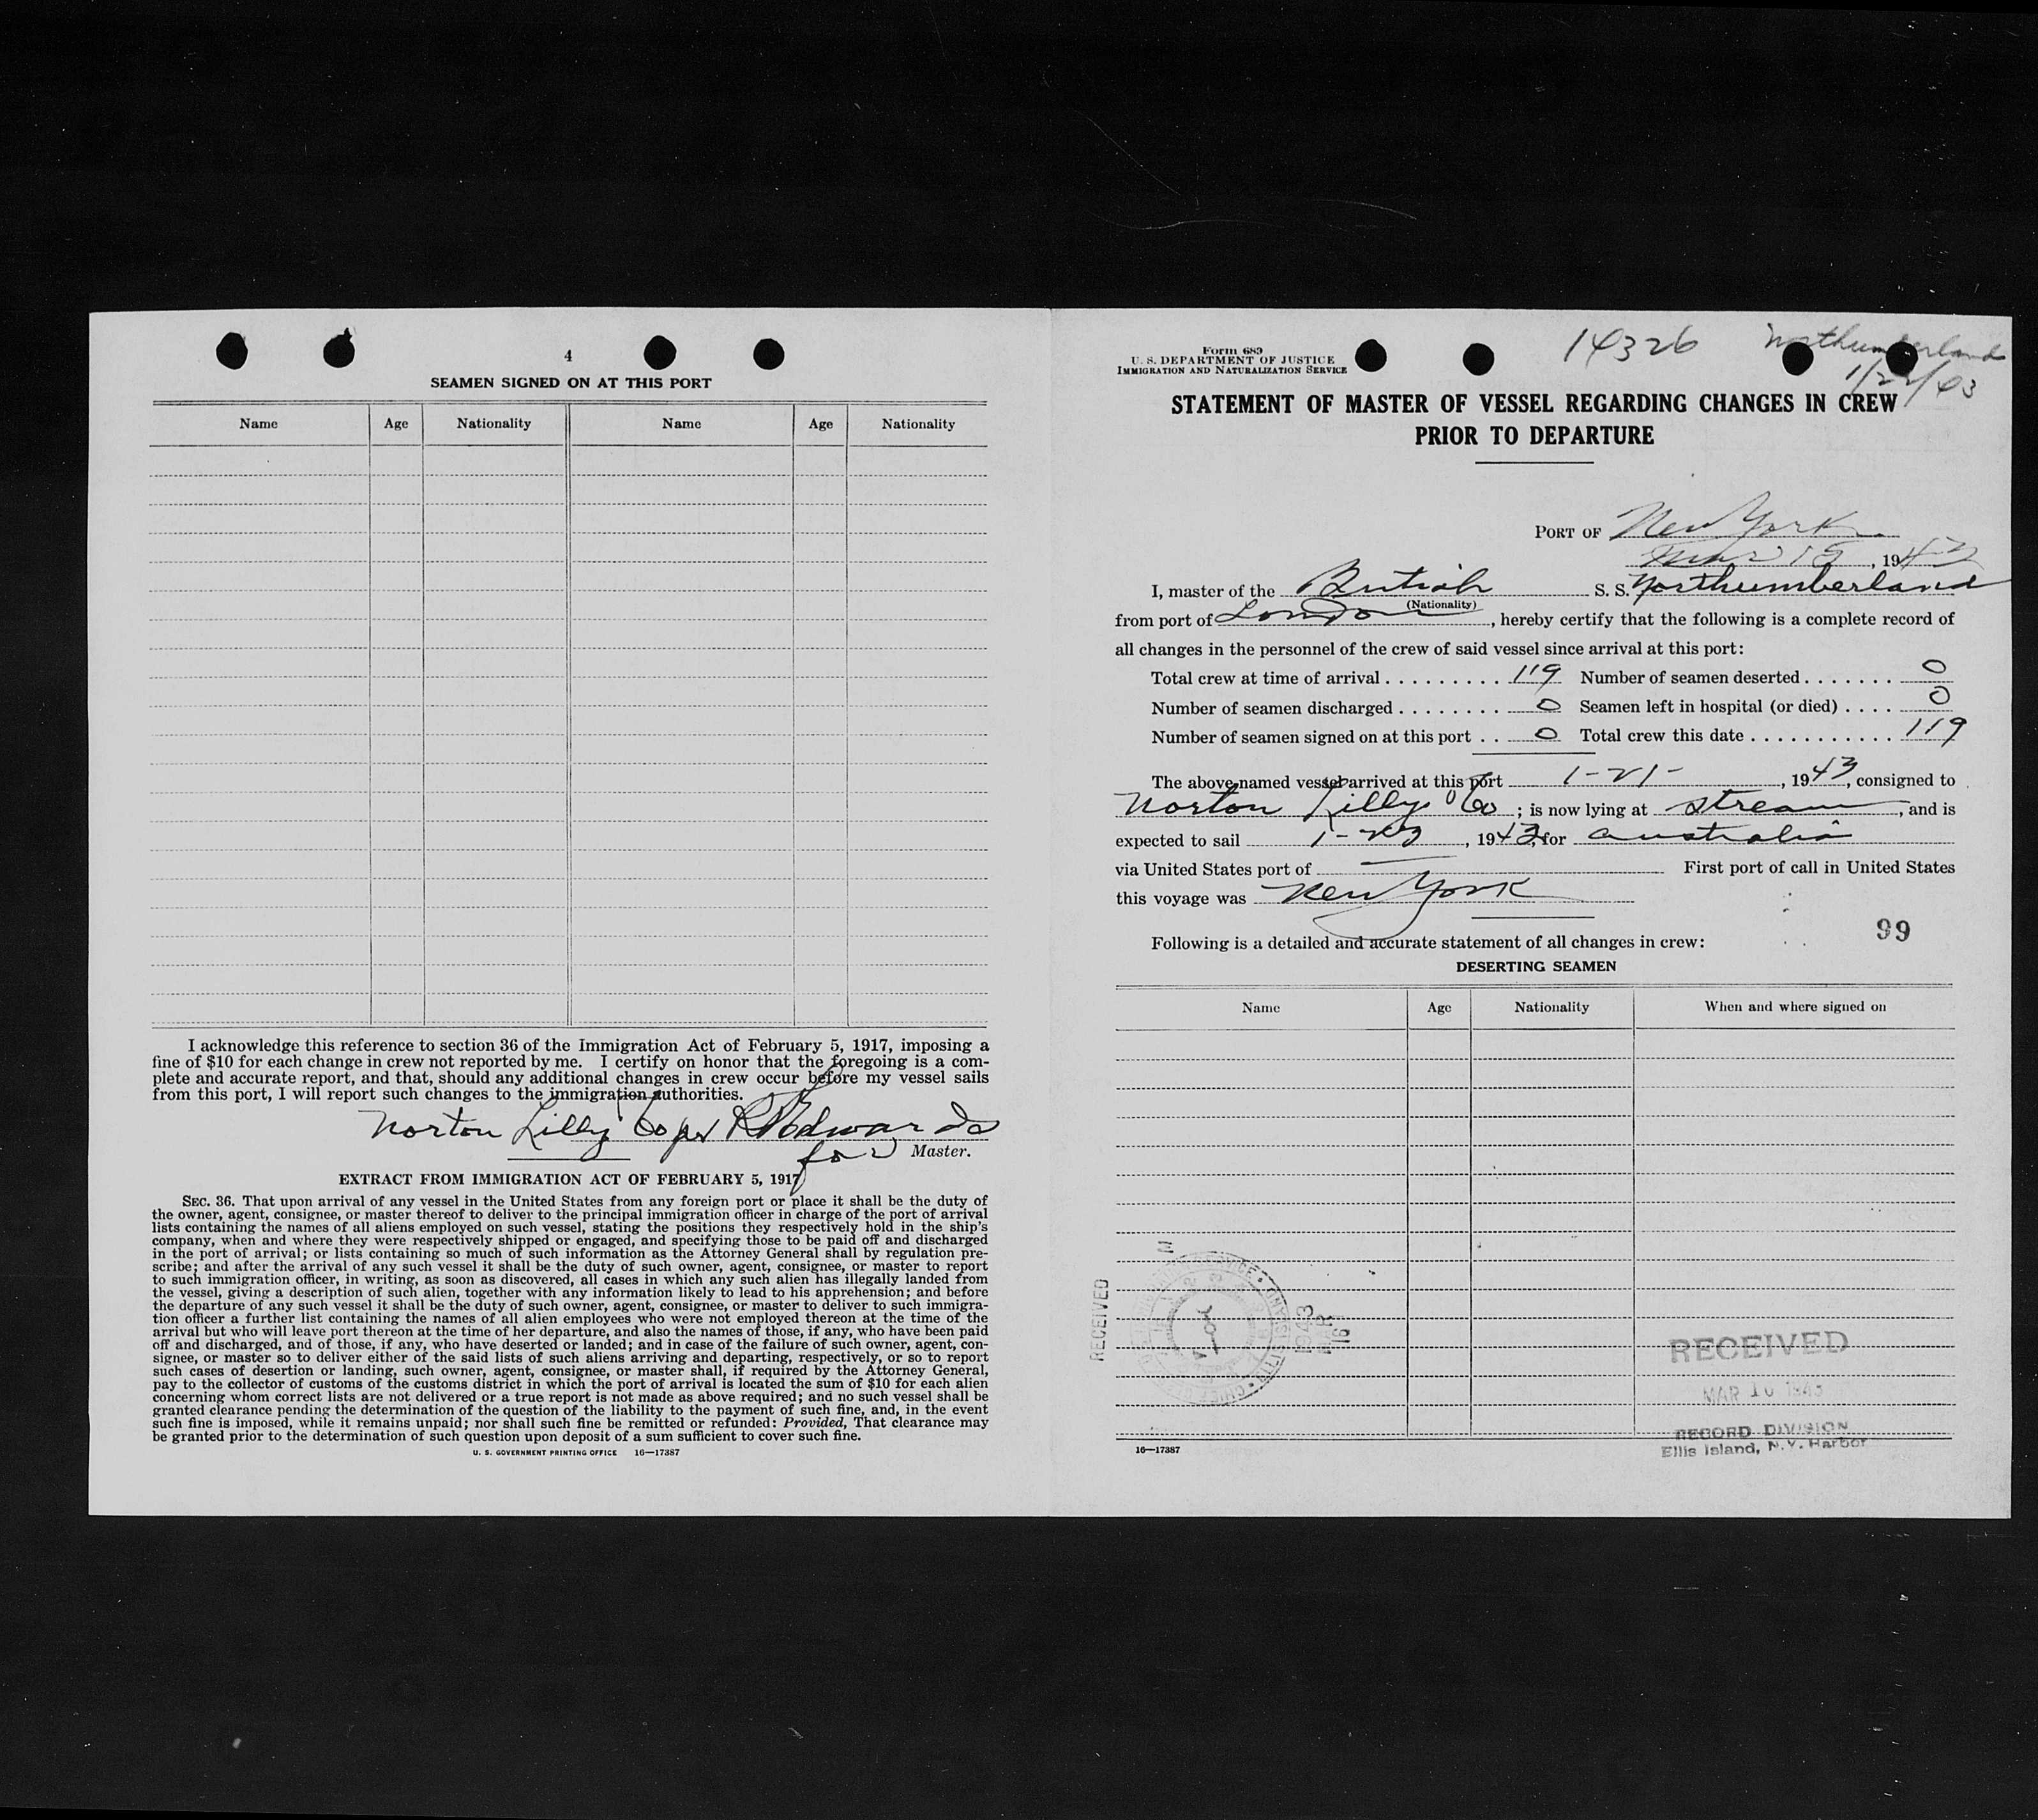 4
SEAMEN SIGNED ON AT THIS PORT
Name Age Nationality Name Age Nationality
I acknowledge this reference to section 36 of the Immigration Act of February 5, 1917, imposing a
fine of $10 for each change in crew not reported by me. I certify on honor that the foregoing is a com-
plete and accurate report, and that, should any additional changes in crew occur before my vessel sails
from this port, I will report such changes to the immigration authorities.
Norton Lilly Co per Edwards
for Master.
EXTRACT FROM IMMIGRATION ACT OF FEBRUARY 5, 1917
SEC. 36. That upon arrival of any vessel in the United States from any foreign port or place it shall be the duty of
the owner, agent, consignee, or master thereof to deliver to the principal immigration officer in charge of the port of arrival
lists containing the names of all aliens employed on such vessel, stating the positions they respectively hold in the ship's
company, when and where they were respectively shipped or engaged, and specifying those to be paid off and discharged
in the port of arrival; or lists containing so much of such information as the Attorney General shall by regulation pre-
scribe; and after the arrival of any such vessel it shall be the duty of such owner, agent, consignee, or master to report
to such immigration officer, in writing, as soon as discovered, all cases in which any such alien has illegally landed from
the vessel, giving a description of such alien, together with any information likely to lead to his apprehension; and before
the departure of any such vessel it shall be the duty of such owner, agent, consignee, or master to deliver to such immigra-
tion officer a further list containing the names of all alien employees who were not employed thereon at the time of the
arrival but who will leave port thereon at the time of her departure, and also the names of those, if any, who have been paid
off and discharged, and of those, if any, who have deserted or landed; and in case of the failure of such owner, agent, con-
signee, or master so to deliver either of the said lists of such aliens arriving and departing, respectively, or so to report
such cases of desertion or landing, such owner, agent, consignee, or master shall, if required by the Attorney General,
pay to the collector of customs of the customs district in which the port of arrival is located the sum of $10 for each alien
concerning whom correct lists are not delivered or a true report is not made as above required; and no such vessel shall be
granted clearance pending the determination of the question of the liability to the payment of such fine, and, in the event
such fine is imposed, while it remains unpaid; nor shall such fine be remitted or refunded: Provided, That clearance may
be granted prior to the determination of such question upon deposit of a sum sufficient to cover such fine.
U. S. GOVERNMENT PRINTING OFFICE 16—17387
Form 689
U. S. DEPARTMENT OF JUSTICE
IMMIGRATION AND NATURALIZATION SERVICE
14326 Northumberland
STATEMENT OF MASTER OF VESSEL REGARDING CHANGES IN CREW
PRIOR TO DEPARTURE
PORT OF New York
Mar 15, 1943
I, master of the British S. S. Northumberland
(Nationality)
from port of London, hereby certify that the following is a complete record of
all changes in the personnel of the crew of said vessel since arrival at this port:
Total crew at time of arrival . . . . . . . . . 119 Number of seamen deserted . . . . . . . 0
Number of seamen discharged . . . . . . . . 0 Seamen left in hospital (or died) . . . . 0
Number of seamen signed on at this port . . 0 Total crew this date . . . . . . . . . . . 119
The above-named vessel arrived at this port 1-21-, 1943, consigned to
Norton Lilly Co; is now lying at stream, and is
expected to sail 1-23, 1943, for Australia
via United States port of — First port of call in United States
this voyage was New York
99
Following is a detailed and accurate statement of all changes in crew:
DESERTING SEAMEN
Name Age Nationality When and where signed on
RECEIVED
1943 MAR 16
RECEIVED
MAR 16 1943
RECORD DIVISION
Ellis Island, N.Y. Harbor
16—17387